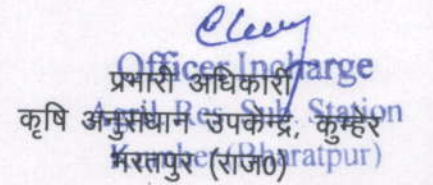 Officer Incharge
प्रभारी अधिकारी
Agril. Res. Sub. Station
कृषि अनुसंधान उपकेन्द्र, कुम्हेर
Kumher (Bharatpur)
भरतपुर (राज0)